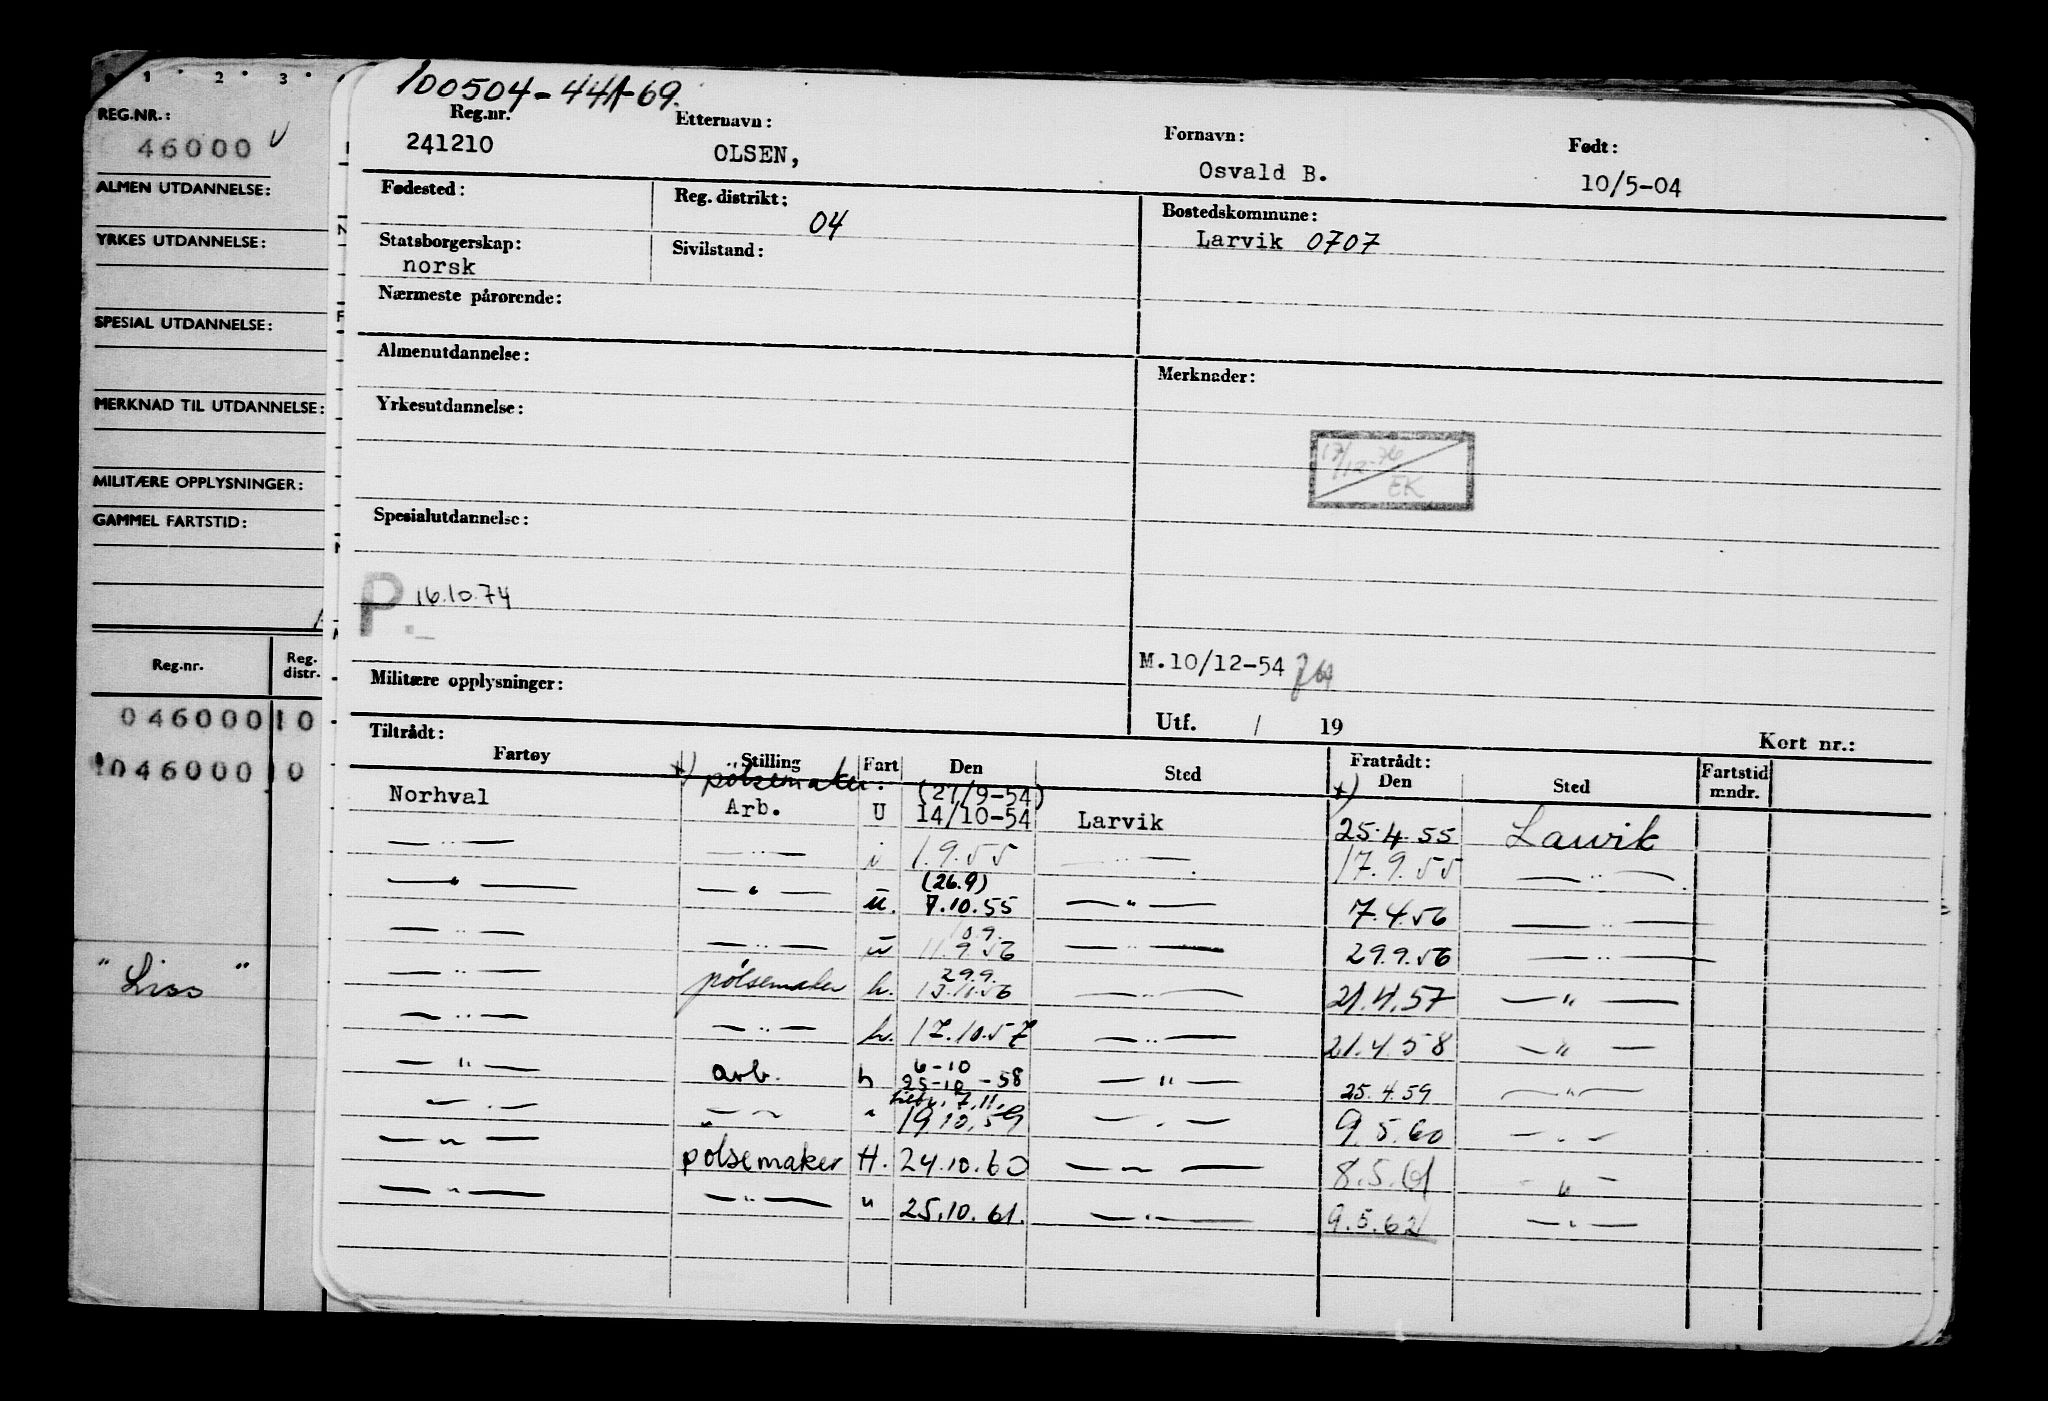 1 2 3
REG.NR.:
46000 v
ALMEN UTDANNELSE:
YRKES UTDANNELSE:
SPESIAL UTDANNELSE:
MERKNAD TIL UTDANNELSE:
MILITÆRE OPPLYSNINGER:
GAMMEL FARTSTID:
Reg.nr. Reg. distr.
046000 10
046000 10
" Liss "
100504-441-69.
Reg.nr. Etternavn: Fornavn: Født:
241210 OLSEN, Osvald B. 10/5-04
Fødested: Reg. distrikt: 04 Bostedskommune:
Larvik 0707
Statsborgerskap: Sivilstand:
norsk
Nærmeste pårørende:
Almenutdannelse: Merknader:
Yrkesutdannelse:
17/12-76
EK
Spesialutdannelse:
P. 16.10.74
M.10/12-54
Militære opplysninger:
Utf. / 19 Kort nr.:
Tiltrådt: Fratrådt:
Fartøy Stilling Fart Den Sted Den Sted Fartstid mndr.
x) pölsemaker. (27/9-54) x)
Norhval Arb. U 14/10-54 Larvik 25.4.55 Larvik
— " — — " — i 1.9.55 — " — 17.9.55 — " —
(26.9)
— " — — " — u. 7.10.55 — " — 7.4.56 — " —
10.9.
— " — — " — u 11.9.56 — " — 29.9.56 — " —
29.9.
— " — pölsemaker h. 13.11.56 — " — 21.4.57 — " —
— " — — " — h. 17.10.57 — " — 21.4.58 — " —
6-10
— " — arb. h 25-10-58 — " — 25.4.59 — " —
7.11.
— " — — " — " 19.10.59 — " — 9.5.60 — " —
— " — pölsemaker H. 24.10.60 — " — 8.5.61 — " —
— " — — " — " 25.10.61. — " — 9.5.62 — " —